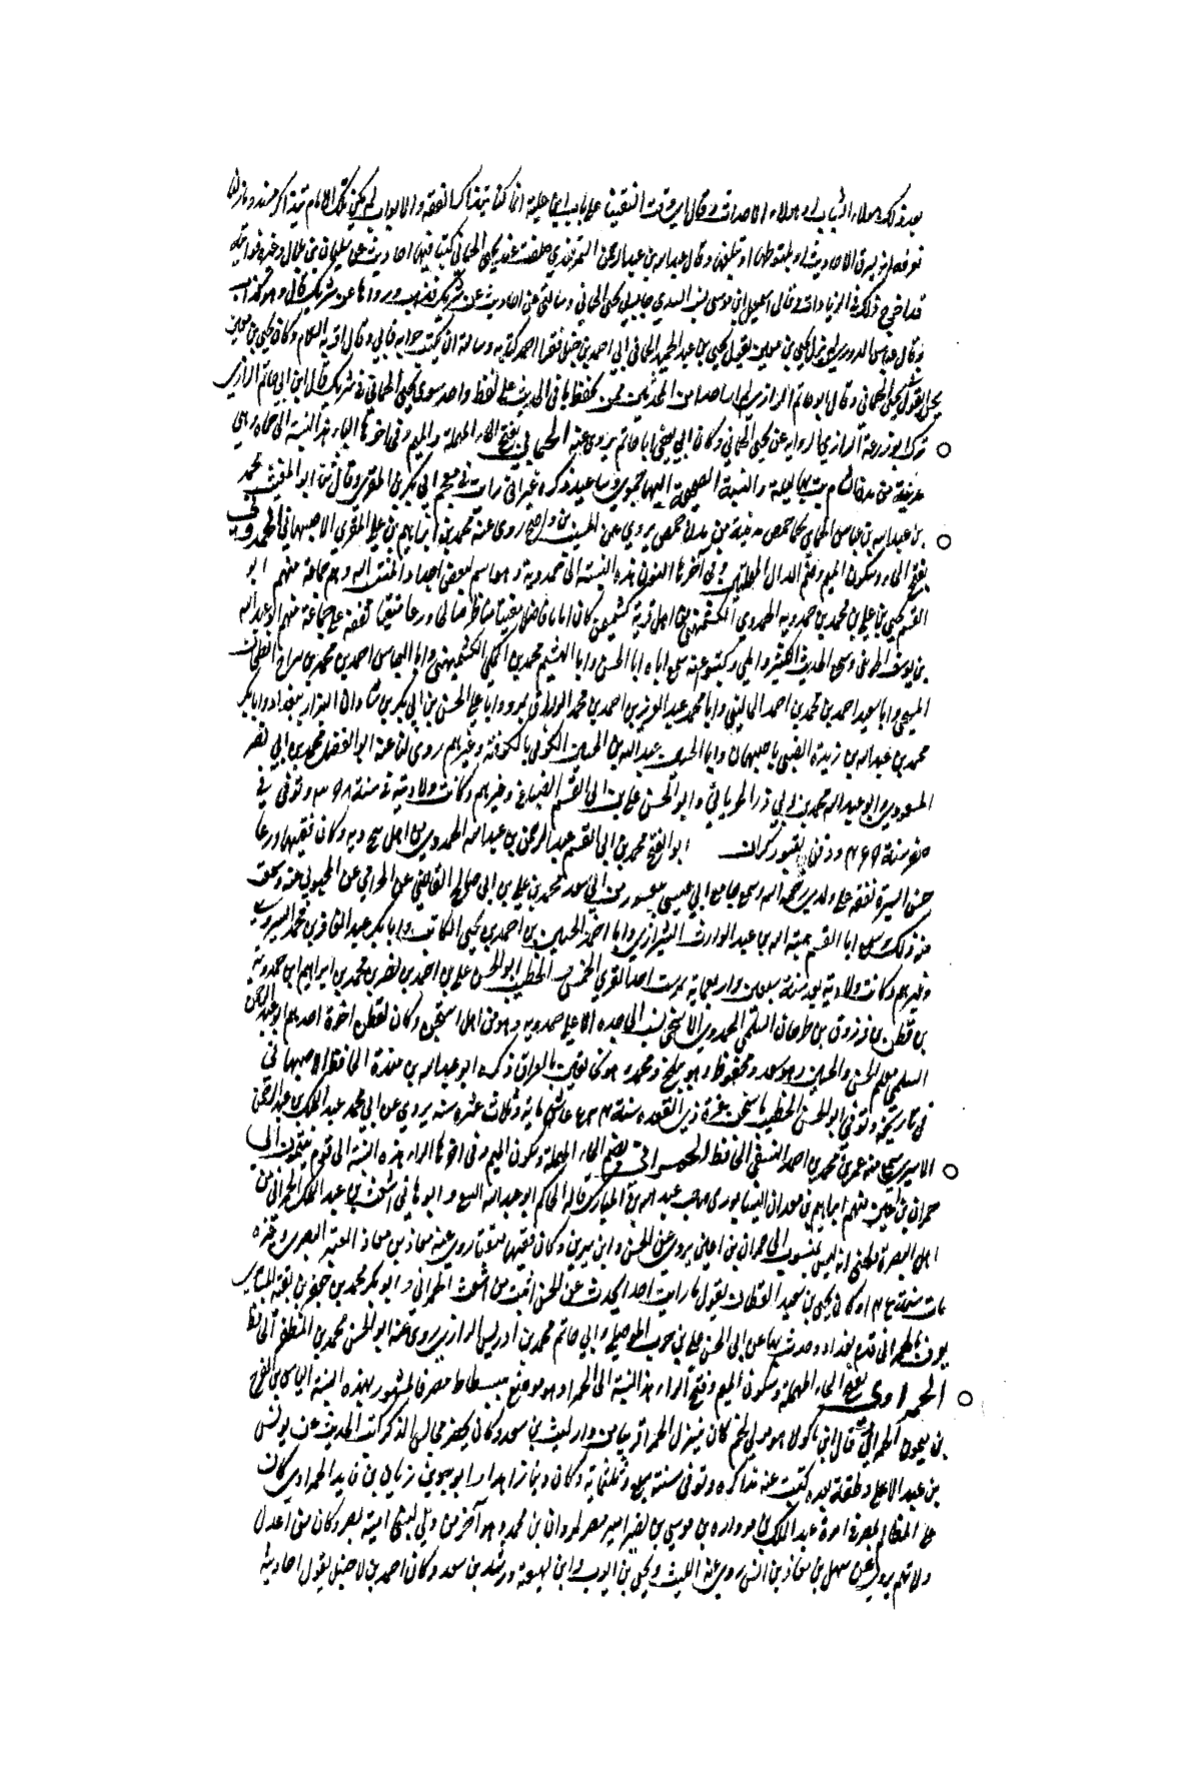 بعد ذلك هولاء الشباب او هولاء الاحداث وقال ايش قلت التقينا على باب ابن علية انما كنا نتذاكر الفقه والابواب لم يكن تلك الايام نتذاكر المسند
نعرفه انه يسرق الاحاديث او يلتقطها او يتلقنها وقال عبد الله بن عبد الرحمن السمرقندي خلفت عند يحيى الحماني كتبا فيها احاديث عن سليمان بن بلال وغيره
قد اخرج ذلك في الزيادات وقال اسمعيل بن موسى نسيب السدي جاءني يحيى الحماني وسالني عن احاديث عن شريك فذهب ورواها عن شريك قال وهو كذاب
وقال عباس الدوري لم يزل يحيى بن معين يقول يحيى بن عبد الحميد الحماني الى احمد بن حنبل فقرا احمد كتابه وساله ان يكتب جوابه فابى وقال اقريه السلام وكان يحيى بن معين
يحمل القول في يحيى الحماني وقال ابو حاتم الرازي لم ار احدا من المحدثين ممن يحفظ ياتي الحديث على لفظ واحد سوى يحيى الحماني في شريك قال ابن ابي حاتم الرازي
ترك ابو زرعة الرازي الرواية عن يحيى الحماني وكان ابي يعني ابا حاتم يروي عنه الحمايي بفتح الحاء المهملة والميم وفي اخرها الياء هذه النسبة الى حماه وهي
مدينة من مدن الشام بت بها ليلة والنسبة الصحيحة اليها حموي وساعيد ذكره غير اني رايت في معجم ابي بكر بن المقري وقال ثنا ابو المغيث محمد
بن عبد الله بن عباس الحمايي بحماه حمص مدينة من مدن حمص يروي عن المسيب بن واضح روى عنه محمد بن ابراهيم بن علي المقري الاصبهاني الحمدوني
بفتح الحاء وسكون الميم وضم الدال المهملتين وفي آخرها النون هذه النسبة الى حمدويه وهو اسم لبعض اجداد المنتسب اليه وهم جماعة منهم ابو
القسم يحيى بن علي بن محمد بن حمدويه الحمدوي الكشميهني من اهل قرية كشميهن كان اماما فاضلا مفتيا مناظرا ورعا متقيا تفقه على جماعة منهم ابو عبد الله
بن يوسف الجويني وسمع الحديث الكثير واملى وكتبوا عنه سمع اباه ابا الحسن وابا الهيثم محمد بن المكي الكشميهني وابا العباس احمد بن محمد بن سراج الطحان
المسيحي وابا سعيد احمد بن محمد بن احمد الماليني وابا محمد عبد العزيز بن احمد بن محمد بمرو وابا علي الحسن بن ابي بكر بن شاذان البزاز ببغداد وابا بكر
محمد بن عبد الله بن ريذة الضبي باصبهان وابا الحسن عبد الله بن الحسين الكوفي بالكوفة وغيرهم روى لنا عنه ابو الفضل محمد بن ابي نصر
المسعودي وابو عبد الله محمد بن ابي ذر وابو الحسن علي بن ابي القسم الصباغي وغيرهم وكانت ولادته في سنة ٣٩٨ وتوفي في
صفر سنة ٤٦٩ ودفن بقبور كران ابو الفتح محمد بن ابي القسم عبد الرحمن بن عبد الله الحمدوي من اهل وكان فقيها ورعا
حسن السيرة تفقه على والدي رحمه الله وسمع جامع ابي عيسى من ابي سعد محمد بن علي بن ابي صالح القاضي عن الجراحي عن المحبوبي عنه وسمعت
منه ذلك وسمع ابا القسم هبة الله بن عبد الوارث الشيرازي وابا احمد الحسين بن احمد بن يحيى الكاتب وابا بكر عبد الغافر بن محمد الشيروي
وغيرهم وكانت ولادته بعد سنة سبعين واربعماية بمرست احد القرى الخمس الخطيب ابو الحسن علي بن احمد بن نصر بن محمد بن ابراهيم ابن حمدويه
بن قطن بن طرخان السلمي الحمدوي الاستجني نسب الى جده الاعلى حمدويه وهو من اهل استجن وكان لقطن اخوة احدهم ابو عبد الرحمن
السلمي معلم الحسن والحسين وهو سعد ومحفوظ وهو ببلخ ومحمد وهو كان بالعراق ذكره ابو عبد الله بن مندة الحافظ الاصبهاني
في تاريخه وتوفي ابو الحسن الخطيب باستجن غرة ذي القعده سنة ماية وثلاث عشره سنه يروي عن ابي محمد عبد الملك بن عبد الرحمن
الاسبيري سمع منه عمر بن محمد بن احمد النسفي الحافظ الحمراني بضم الحاء المهملة وسكون الميم وفي اخرها الراء هذه النسبة الى قوم ينتمون الى
حمران بن اعين منهم ابراهيم بن معدان النيسابوري صاحب عبد الله بن المبارك قاله الحاكم ابو عبد الله البيع وابو هاني اشعث بن عبد الملك الحمراني من
اهل البصرة انه ليس بمنسوب الى حمران بن اعين يروي عن الحسن وابن سيرين وكان فقيها متقنا روى عنه معاذ بن معاذ العنبري البصري وغيره
مات سنة ١٤٦ وكان يحيى بن سعيد القطان يقول ما رايت احدا يحدث عن الحسن اثبت من اشعث الحمراني وابو بكر محمد بن جعفر بن بقية
يعرف بالحمراني قدم بغداد وحدث بها عن ابي الحسن علي بن حرب الموصلي وابي حاتم محمد بن ادريس الرازي روى عنه ابو الحسن محمد بن المظفر الحافظ
الحمراوي بفتح الحاء المهملة وسكون الميم وفتح الراء هذه النسبة الى الحمراء وهو موضع بفسطاط مصر فالمشهور بهذه النسبة الياس بن الفرج
بن ميمون الحمراوي قال ابن ماكولا هو مولى لخم كان ينزل الحمراء قريبا من دار ليث بن سعد وكان يحضر مجالس الذكر كتب الحديث عن يونس
بن عبد الاعلى وطبقة بعده كتبت عنه مذاكره وتوفي سنة سبع وثلثماية وكان دينا زاهدا وابو جوين زبان بن فايد الحمراوي كان
على المظالم بمصر في امرة عبد الملك بن مروان بن موسى بن نصير امير مصر لمروان بن محمد وهو آخر من ولي لبني امية بمصر وكان من اعدل
ولاتهم يروي عن سهل بن معاذ بن انس روى عنه الليث ويحيى بن ايوب وابن لهيعة ورشدين بن سعد وكان احمد بن حنبل يقول احاديثه